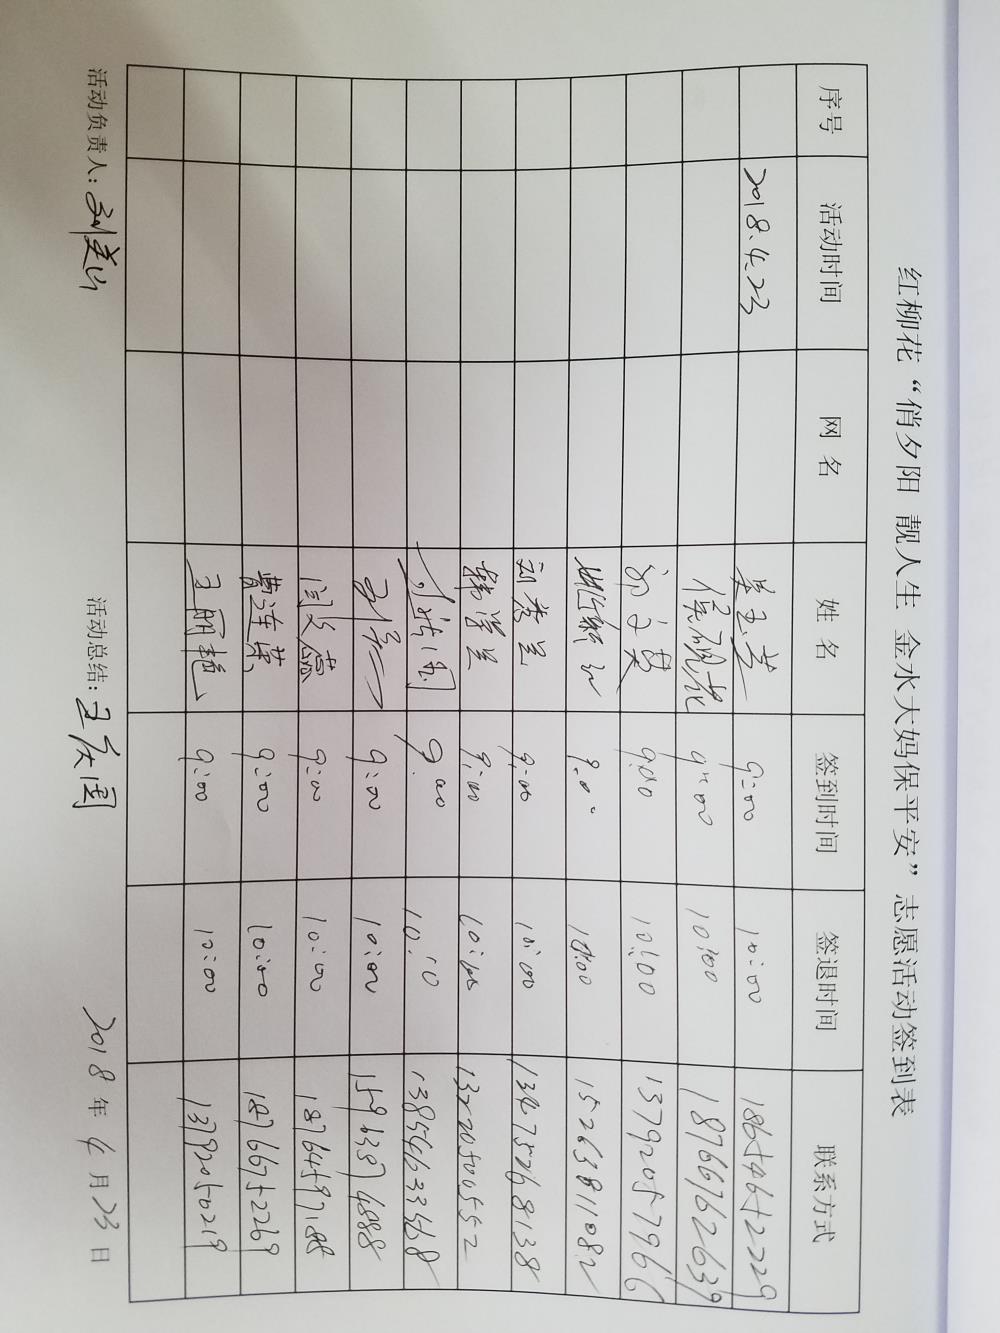 红柳花“俏夕阳 靓人生 金水大妈保平安”志愿活动签到表
序号 活动时间 网名 姓名 签到时间 签退时间 联系方式
2018.4.23 9:00 10:00 18654652229
9:00 10:00 18766762639
9:00 10:00 13792057966
9:00 10:00 15263811082
刘秀兰 9:00 10:00 13475268138
韩学兰 9:00 10:00 13220500552
9:00 10:10 13854633468
9:00 10:00 15963974888
9:00 10:00 18764597188
黄连英 9:00 10:00 18766752269
王丽艳 9:00 10:00 13792050219
活动负责人: 活动总结:王庆国 2018年4月23日